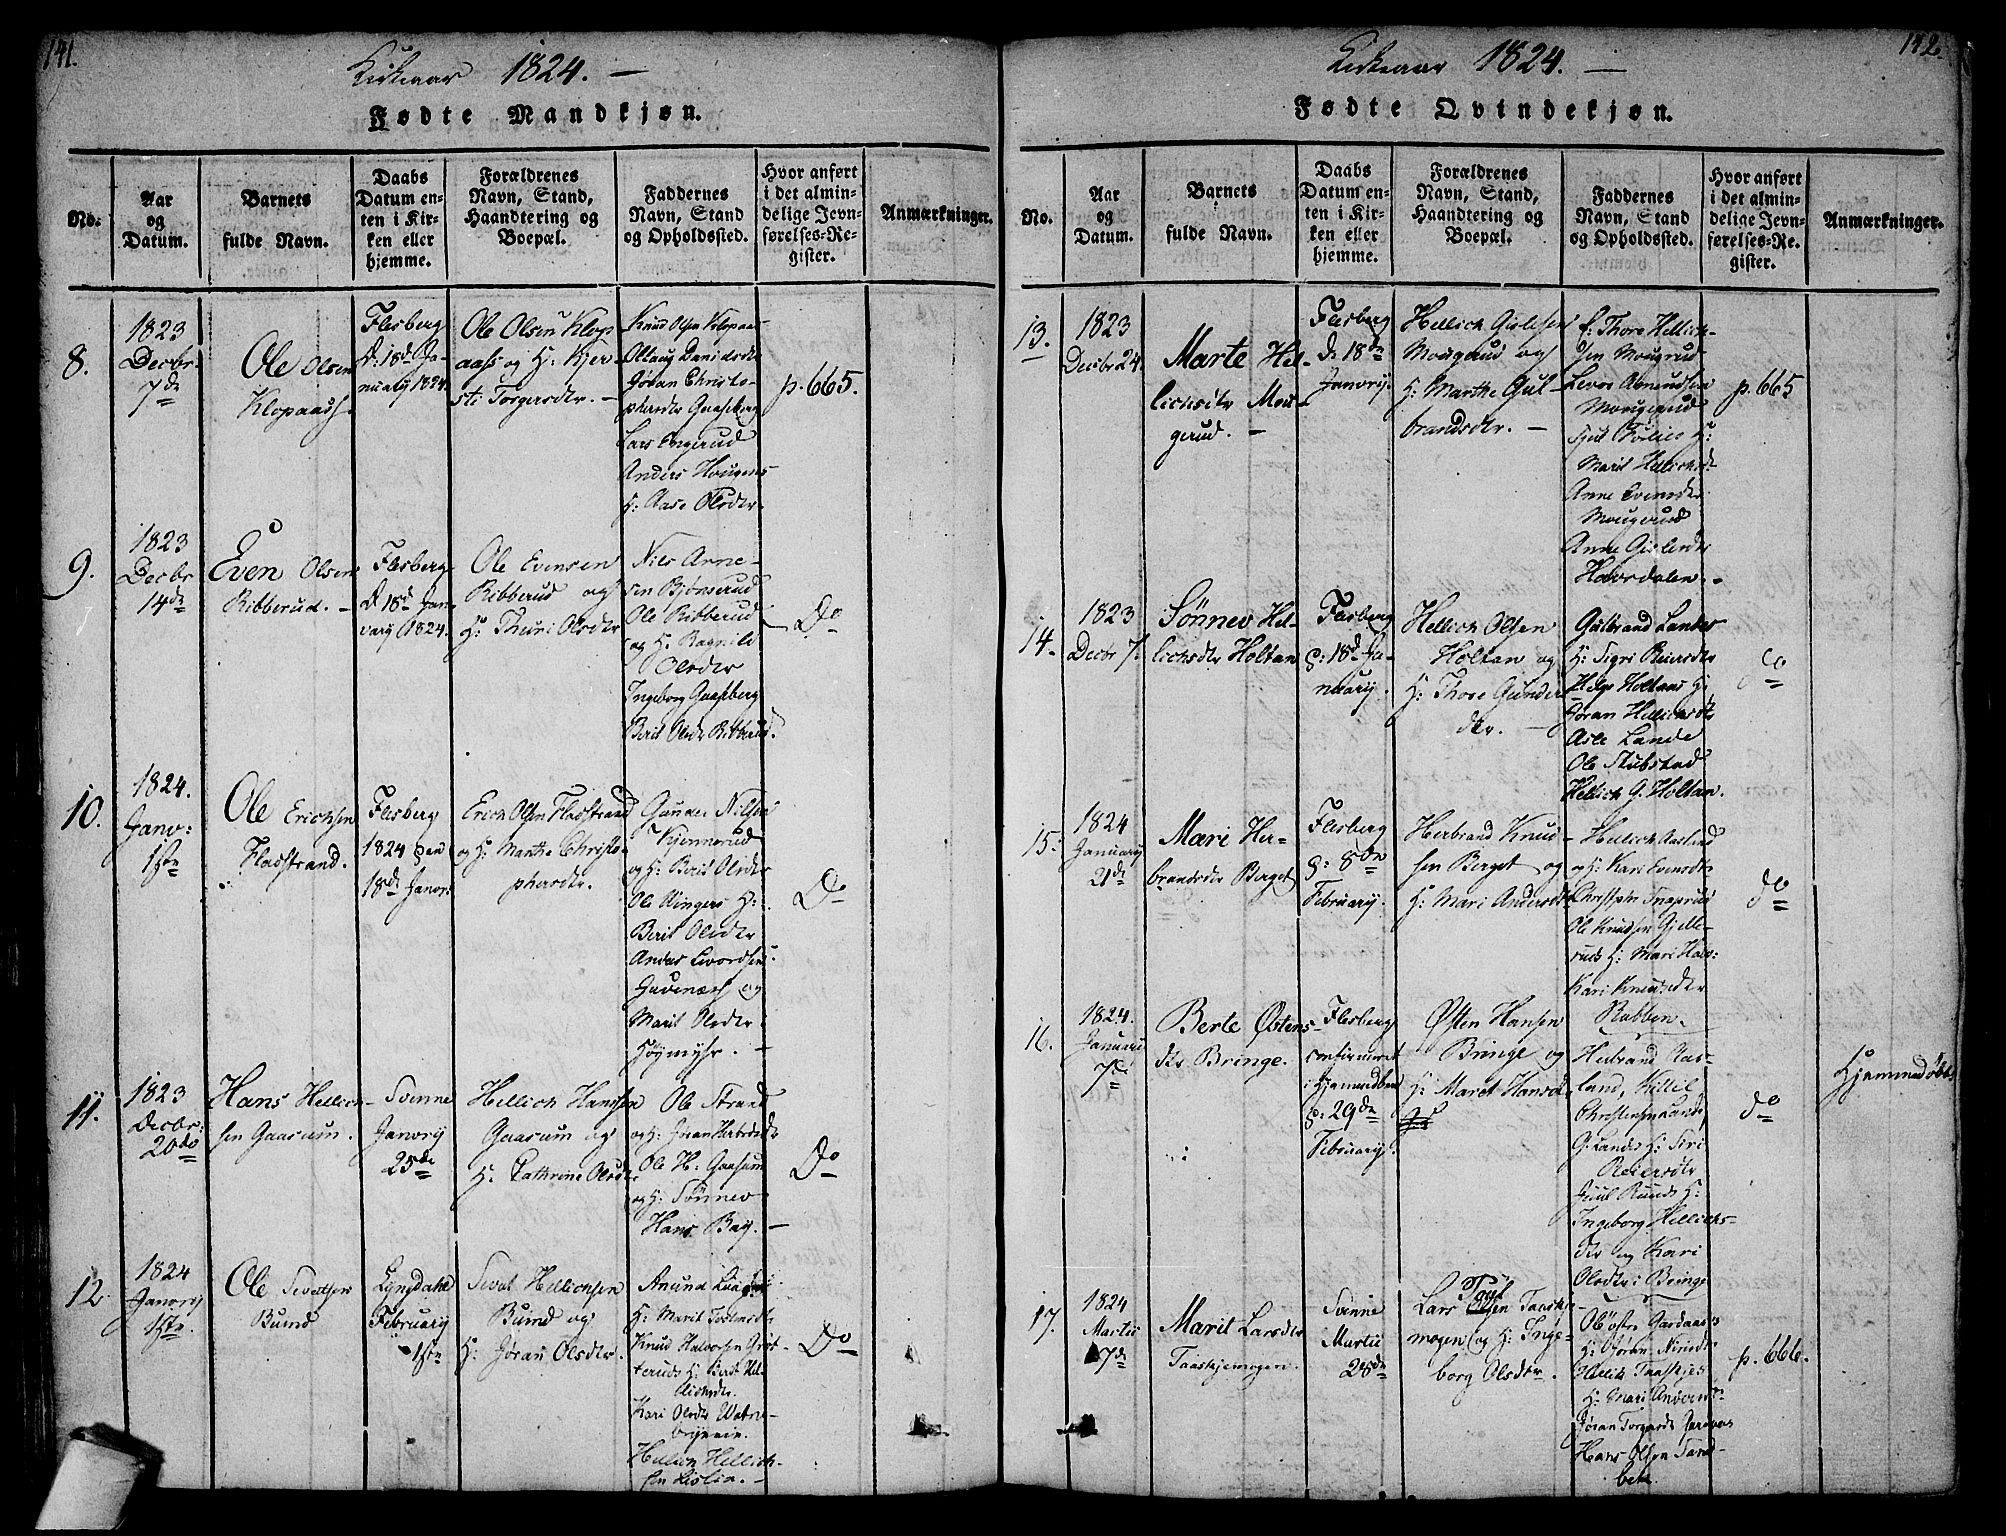 141.
Kirkeaar 1824. —
Fødte Mandkjøn.
No.
Aar
og
Datum.
Barnets
fulde Navn.
Daabs
Datum en-
ten i Kir-
ken eller
hjemme.
Forældrenes
Navn, Stand,
Haandtering og
Boepæl.
Faddernes
Navn, Stand
og Opholdssted.
Hvor anført
i det almin-
delige Jevn-
førelses-Re-
gister.
Anmærkninger.
8.
1823
Decbr.
7de
Ole Olsen
Klopaas
Flesberg
d. 18de Ja-
nuary 1824.
Ole Olsen Klop
aass og H: Kjer-
sti Torgersdtr. —
Knud Olsen Klopaas
Ollaug Danielsdtr
Jøran Christo-
phersdtr Gaasberg
Lars
Anders Hougens
H: Aase Olsdtr.
p. 665.
9.
1823
Decbr
14de
Even Olsen
Ribberud. —
Flesberg
d 18de Jan-
vary 1824.
Ole Evensen
Ribberud og
H: Thuri Olsdtr
Nils Arne-
sen Bjønserud
Ole Ribberud
og H. Ragnild
Olsdtr
Ingeborg Gaasberg
Berit Olsdr Ribberud.
Do
10.
1824.
Janv:
1ste
Ole Erichsen
Fladstrand.
Flesberg
1824 den
18de Janvr:
Erich Olsen Fladstrand
og H: Marthe Christo-
phersdtr.
Gunder Nilsen
Kjennerud
og H: Berit Olsdtr
Ole Ringers H:
Berit Olsdtr
Anders Livordsen
og
Marit Olsdtr
Høymyhr. —
Do
11.
1823
Decbr:
20de
Hans Hellich-
sen Gaasum.
Svenne
Janvry
25de
Hellich Hansen
Gaasum og
H. Cathrine Olsdtr
Ole Strand
og H: Jøran Herbrdsdtr
Ole H: Gaasum
og H: Sønnev
Hans Bay. —
Do
12.
1824
Janvry
1ste.
Ole Sevatsen
Buind
Lyngdahl
February
1ste
Sevat Hellichsen
Buind og
H: Jøran Olsdtr.
Amund
H: Marit
Knud Halvorsen Grøt-
teruds H: Berit Hel-
lichsdtr.
Kari Olsdtr
Hellich Hellich-
sen Lislia. —
Do
142.
Kirkeaar 1824. —
Fødte Qvindekjøn.
No.
Aar
og
Datum.
Barnets
fulde Navn.
Daabs
Datum en-
ten i Kir-
ken eller
hjemme.
Forældrenes
Navn, Stand,
Haandtering og
Boepæl.
Faddernes
Navn, Stand
og Opholdssted.
Hvor anført
i det almin-
delige Jevn-
førelses-Re-
gister.
Anmærkninger.
13.
1823
Decbr 24
Marte Hel-
lichsdtr Mou-
gerud. —
Flesberg
d. 18de
Janvry.
Hellich Gislesen
Mougerud og
H: Marthe Gul-
brandsdtr. —
f: Thore Hellich-
sen Mougrud
Levor Asmundsen
Mougerud
H:
Marit Hellichsd
Anne Evensdtr
Mougerud
Anne Gislesdtr
Havrdalen. -
p. 665
14.
1823
Decbr 7.
Sønnev Hel-
lichsdtr Holtan
Flesberg
d: 18de Ja-
nuary.
Hellich Olsen
Holtan og
H: Thore Gunders
dtr. —
Gulbrand Landes
H: Sigri Reiersdtr
Helge Holtans H:
Jøran Hellichsdtr
Asle Lande
Ole Stubstad
Hellich G. Holtan.
do
15.
1824
January
21de
Mari Her-
brandsdtr Berget
Flesberg
d: 8de
February.
Herbrand Knud-
sen Berget og
H: Mari Andersdt
Hellich Aasland
og H: Kari Evensdtr
Christopher
Ole Knudsen Gjelle-
ruds H: Mari Halv:
Kari Knudsdtr
Rabben.
do
16.
1824.
Januari
7de
Berte Østens-
dtr Bringe.
Flesberg
confirmeret
i Hjemmedben
d: 29de
February.
Østen Hansen
Bringe og
H: Maret Hansd
Herbrand Aas-
land, Killil
Christensen Lande,
G: Landes H: Siri
Reiersdtr
Juul Ruuds H:
Ingeborg Hellichs-
dtr og Kari
Olsdtr: Bringe
do
Hjemmedøbt
17.
1824
Martii
7de
Marit Larsdtr
Taaskjemogen.
Svenne
Martii
25de
Lars Olsen Taaskje-
mogen og H: Inge-
borg Olsdtr.
Ole Østr Gardaas's
H: Jøran
Hellich Taaskjes
H: Mari
Jøran Torgersdt
Hans Olsen Sand-
bek
p. 666.